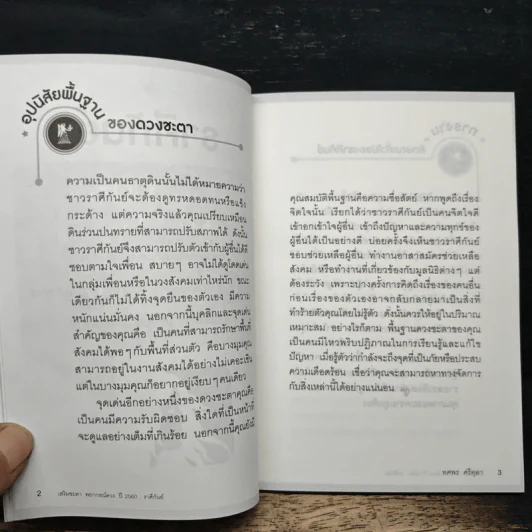 อุปนิสัยพื้นฐาน
ของดวงชะตา
ความเป็นคนธาตุดินนั้นไม่ได้หมายความว่า
ชาวราศีกันย์จะต้องดูทรหดอดทนหรือแข็ง
กระด้าง แต่ความจริงแล้วคุณเปรียบเหมือน
ดินร่วนปนทรายที่สามารถปรับสภาพได้ ดังนั้น
ชาวราศีกันย์จึงสามารถปรับตัวเข้ากับผู้อื่นได้ดี
ชอบตามใจเพื่อน สบายๆ อาจไม่ได้ดูโดดเด่น
ในกลุ่มเพื่อนหรือในวงสังคมเท่าไหร่นัก ขณะ
เดียวกันก็ไม่ได้ทิ้งจุดยืนของตัวเอง มีความ
หนักแน่นมั่นคง นอกจากนี้บุคลิกและจุดเด่น
สำคัญของคุณคือ เป็นคนที่สามารถรักษาพื้นที่
สังคมได้พอๆ กับพื้นที่ส่วนตัว คือบางมุมคุณ
สามารถอยู่ในงานสังคมได้อย่างไม่เคอะเขิน
แต่ในบางมุมคุณก็อยากอยู่เงียบๆ คนเดียว
จุดเด่นอีกอย่างหนึ่งของดวงชะตาคุณคือ
เป็นคนมีความรับผิดชอบ สิ่งใดที่เป็นหน้าที่
จะดูแลอย่างเต็มที่เกินร้อย นอกจากนี้คุณยังมี
2 เสริมชะตา พยากรณ์ดวง ปี 2560 ราศีกันย์
คุณสมบัติพื้นฐานคือความซื่อสัตย์ หากพูดถึงเรื่อง
จิตใจนั้น เรียกได้ว่าชาวราศีกันย์เป็นคนจิตใจดี
เข้าอกเข้าใจผู้อื่น เข้าถึงปัญหาและความทุกข์ของ
ผู้อื่นได้เป็นอย่างดี บ่อยครั้งจึงเห็นชาวราศีกันย์
ชอบช่วยเหลือผู้อื่น ทำงานอาสาสมัครช่วยเหลือ
สังคม หรือทำงานที่เกี่ยวข้องกับมูลนิธิต่างๆ แต่
ต้องระวัง เพราะบางครั้งการคิดถึงเรื่องของคนอื่น
ก่อนเรื่องของตัวเองอาจกลับกลายมาเป็นสิ่งที่
ทำร้ายตัวคุณโดยไม่รู้ตัว ดังนั้นควรให้อยู่ในปริมาณ
เหมาะสม อย่างไรก็ตาม พื้นฐานดวงชะตาของคุณ
เป็นคนมีไหวพริบปฏิภาณในการเรียนรู้และแก้ไข
ปัญหา เมื่อรู้ตัวว่ากำลังจะถึงจุดที่เป็นภัยหรือประสบ
ความเดือดร้อน เชื่อว่าคุณจะสามารถหาทางจัดการ
กับสิ่งเหล่านี้ได้อย่างแน่นอน
ทศพร ศรีตุลา 3